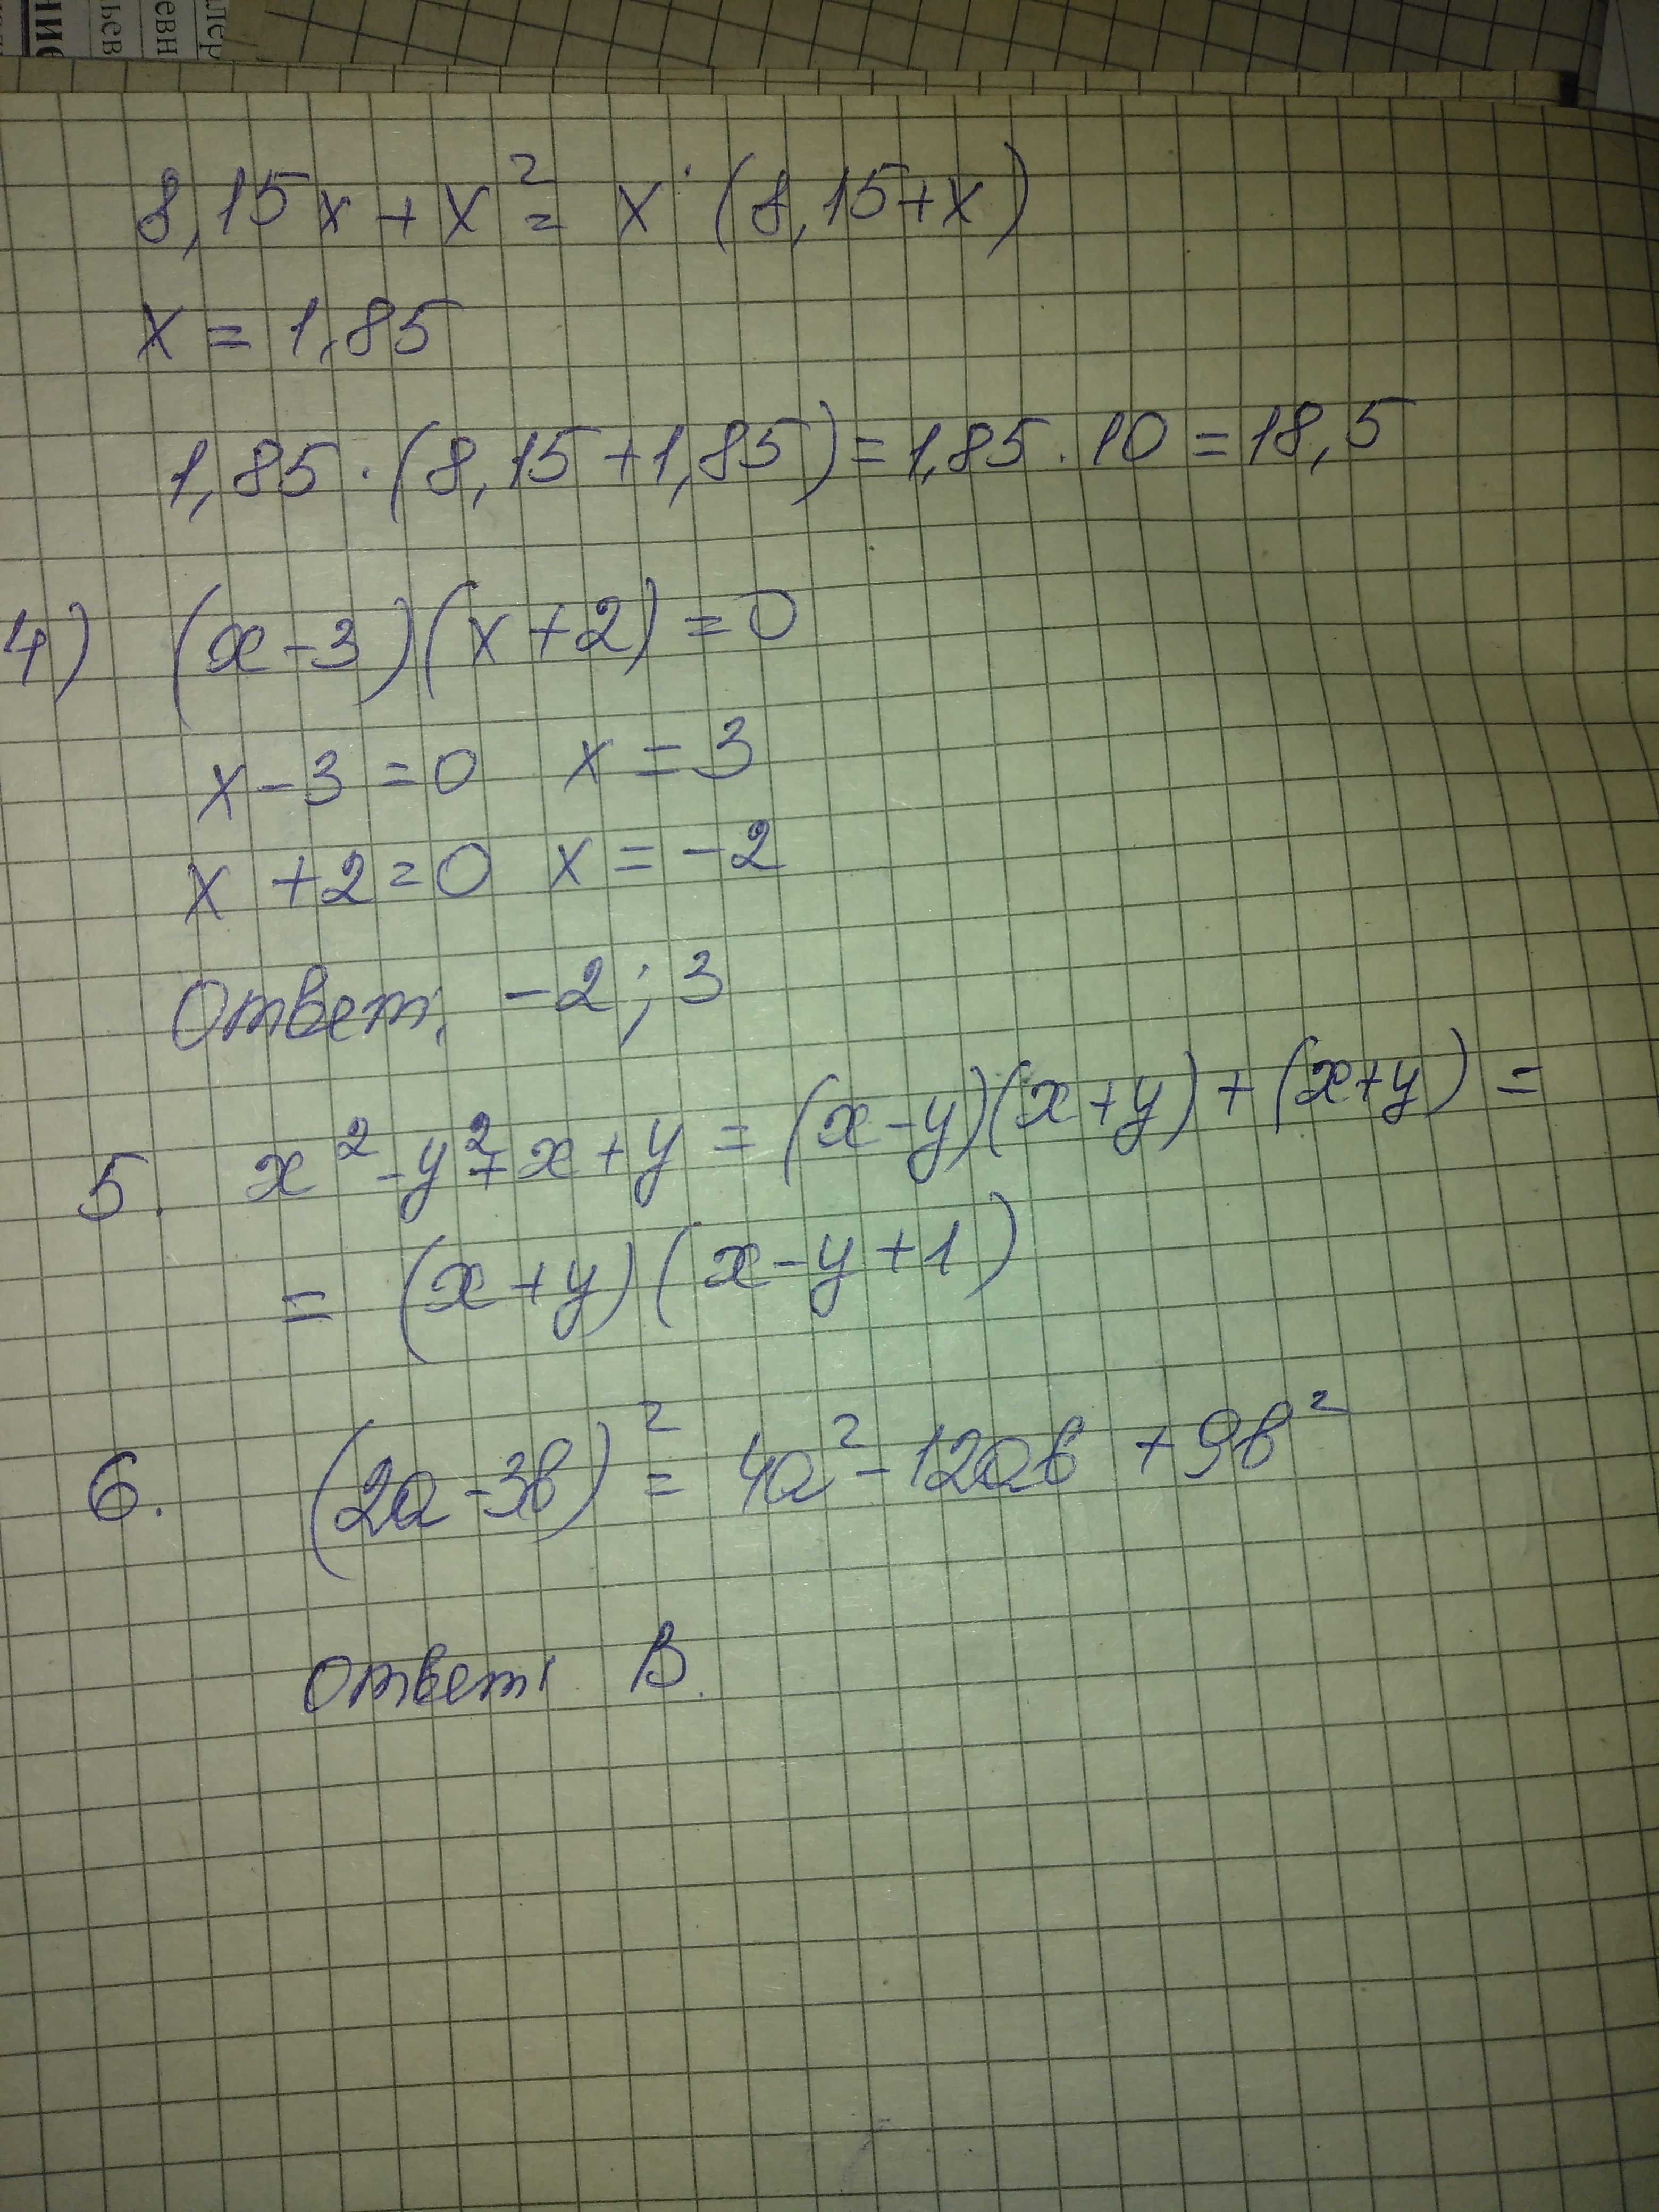 8,15x + x² = x · (8,15+x)
x = 1,85
1,85 · (8,15+1,85) = 1,85 · 10 = 18,5
4) (x-3)(x+2) = 0
x - 3 = 0 x = 3
x + 2 = 0 x = -2
Ответ: -2; 3
5. x² - y² + x + y = (x-y)(x+y) + (x+y) =
= (x+y)(x-y+1)
6. (2a-3b)² = 4a² - 12ab + 9b²
Ответ: В.